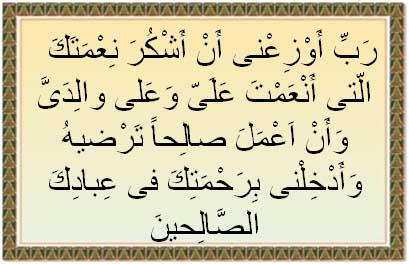 رَبِّ أَوْزِعْنى أَنْ أَشْكُرَ نِعْمَتَكَ
الَّتى أَنْعَمْتَ عَلَىّ وَعَلى والِدَىَّ
وَأَنْ اَعْمَلَ صالِحاً تَرْضيهُ
وَأَدْخِلْنى بِرَحْمَتِكَ فى عِبادِكَ
الصَّالِحينَ